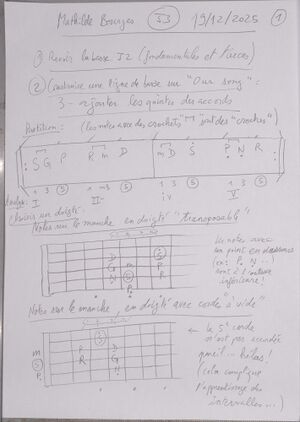 Mathilde Bourges 33 19/12/2025 1
① Revoir la basse J2 (fondamentales et tierces)
② Construire une ligne de basse sur "Our song" :
3 - ajouter les quintes des accords
Partition : (les notes avec des crochets "┌┐" sont des "croches")
S G P R m D m D S P N R
1 3 5 1 3 5 1 3 5 1 3 5
I II- IV V
choisir un doigté
Notes sur le manche en doigté "transposable"
Les notes avec
un point en dessous
(ex: P. N ...)
sont à l'octave
inférieure !
Notes sur le manche, en doigté avec corde "à vide"
← la 5' corde
n'est pas accordée
pareil... hélas !
(cela complique
l'apprentissage des
intervalles...)